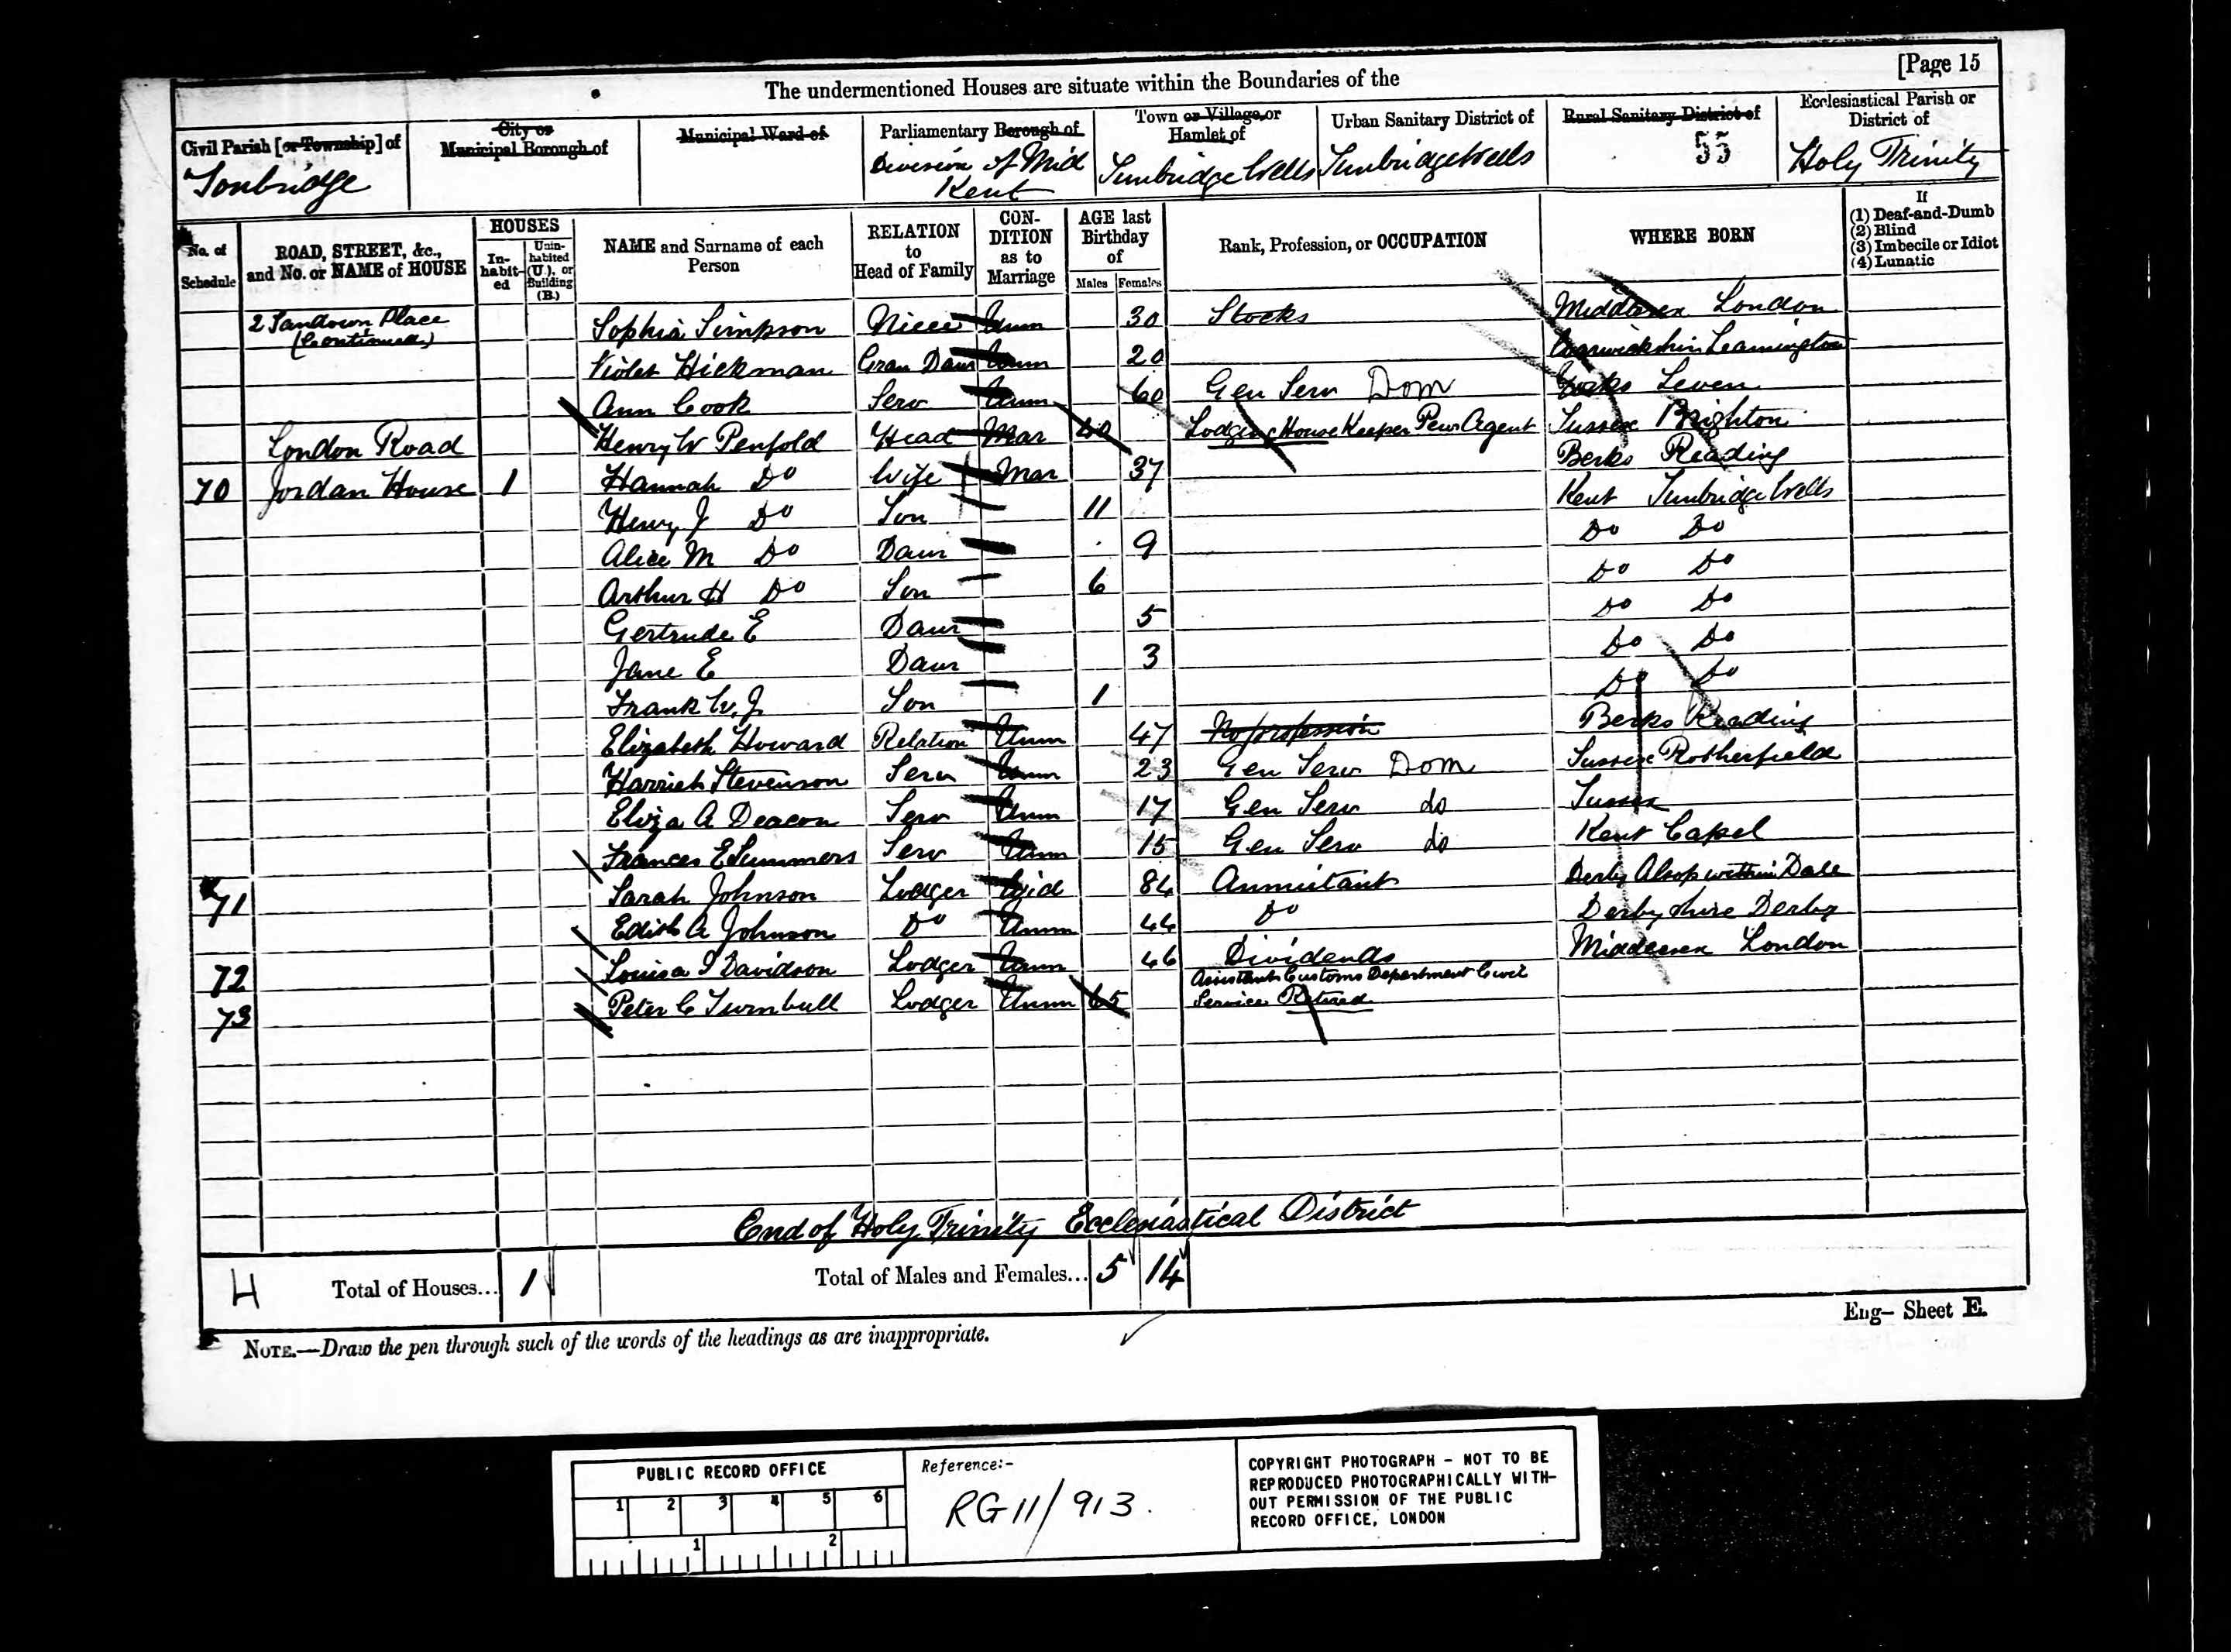 [Page 15
The undermentioned Houses are situate within the Boundaries of the
Civil Parish [or Township] of
Tonbridge
City or
Municipal Borough of
Municipal Ward of
Parliamentary Borough of
Division of Mid
Kent
Town or Village or
Hamlet of
Tunbridge Wells
Urban Sanitary District of
Tunbridge Wells
Rural Sanitary District of
55
Ecclesiastical Parish or
District of
Holy Trinity
No. of
Schedule
ROAD, STREET, &c.,
and No. or NAME of HOUSE
HOUSES
In-
habit-
ed
Unin-
habited
(U.), or
Building
(B.)
NAME and Surname of each
Person
RELATION
to
Head of Family
CON-
DITION
as to
Marriage
AGE last
Birthday
of
Males Females
Rank, Profession, or OCCUPATION
WHERE BORN
If
(1) Deaf-and-Dumb
(2) Blind
(3) Imbecile or Idiot
(4) Lunatic
2 Sandown Place
(Continued)
Sophia Simpson Niece Unm 30 Stocks Middlesex London
Violet Hickman Gran Daur Unm 20 Warwickshire Leamington
Ann Cook Serv Unm 60 Gen Serv Dom Yorks Leven
London Road Henry W Penfold Head Mar 40 Lodging House Keeper Pew Agent Sussex Brighton
70 Jordan House 1 Hannah Do Wife Mar 37 Berks Reading
Henry J Do Son 11 Kent Tunbridge Wells
Alice M Do Daur 9 Do Do
Arthur H Do Son 6 Do Do
Gertrude E Daur 5 Do Do
Jane E Daur 3 Do Do
Frank W. J. Son 1 Do Do
Elizabeth Howard Relation Unm 47 No profession Berks Reading
Harriet Stevenson Serv Unm 23 Gen Serv Dom Sussex Rotherfield
Eliza A Deacon Serv Unm 17 Gen Serv do Sussex
Frances E Summers Serv Unm 15 Gen Serv do Kent Capel
71 Sarah Johnson Lodger Wid 84 Annuitant Derby Alsop within Dale
Edith A Johnson Do Unm 44 Do Derbyshire Derby
72 Louisa I Davidson Lodger Unm 46 Dividends Middlesex London
73 Peter C Turnbull Lodger Unm 65 Assistant Customs Department Civil
Service Retired
End of Holy Trinity Ecclesiastical District
H Total of Houses... 1 Total of Males and Females... 5 14
Eng- Sheet E.
NOTE.—Draw the pen through such of the words of the headings as are inappropriate.
PUBLIC RECORD OFFICE
1 2 3 4 5 6
1 2
Reference:-
RG 11/913.
COPYRIGHT PHOTOGRAPH - NOT TO BE
REPRODUCED PHOTOGRAPHICALLY WITH-
OUT PERMISSION OF THE PUBLIC
RECORD OFFICE, LONDON